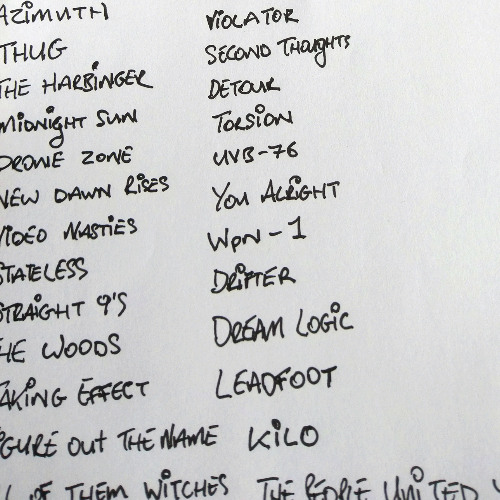 AZIMUTH VIOLATOR
THUG SECOND THOUGHTS
THE HARBINGER DETOUR
MIDNIGHT SUN TORSION
DRONE ZONE UVB-76
NEW DAWN RISES YOU ALRIGHT
VIDEO NASTIES WPN-1
STATELESS DRIFTER
STRAIGHT 9'S DREAM LOGIC
HE WOODS LEADFOOT
AKING EFFECT
IGURE OUT THE NAME KILO
OF THEM WITCHES THE PEOPLE UNITED